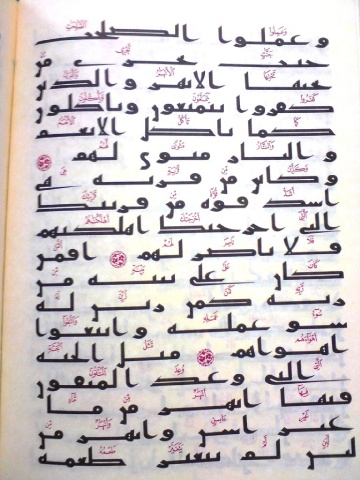 وعملوا الصلحت
جنت تجرى من
تحتها الانهر والذين
كفروا يتمتعون وياكلون
كما تاكل الانعم
والنار مثوى لهم
وكاين من قرية هى
اشد قوة من قريتك
التى اخرجتك اهلكنهم
فلا ناصر لهم افمن
كان على بينة من
ربه كمن زين له
سو عمله واتبعوا
اهواهم مثل الجنة
التى وعد المتقون
فيها انهر من ما
غير اسن وانهر من
لبن لم يتغير طعمه